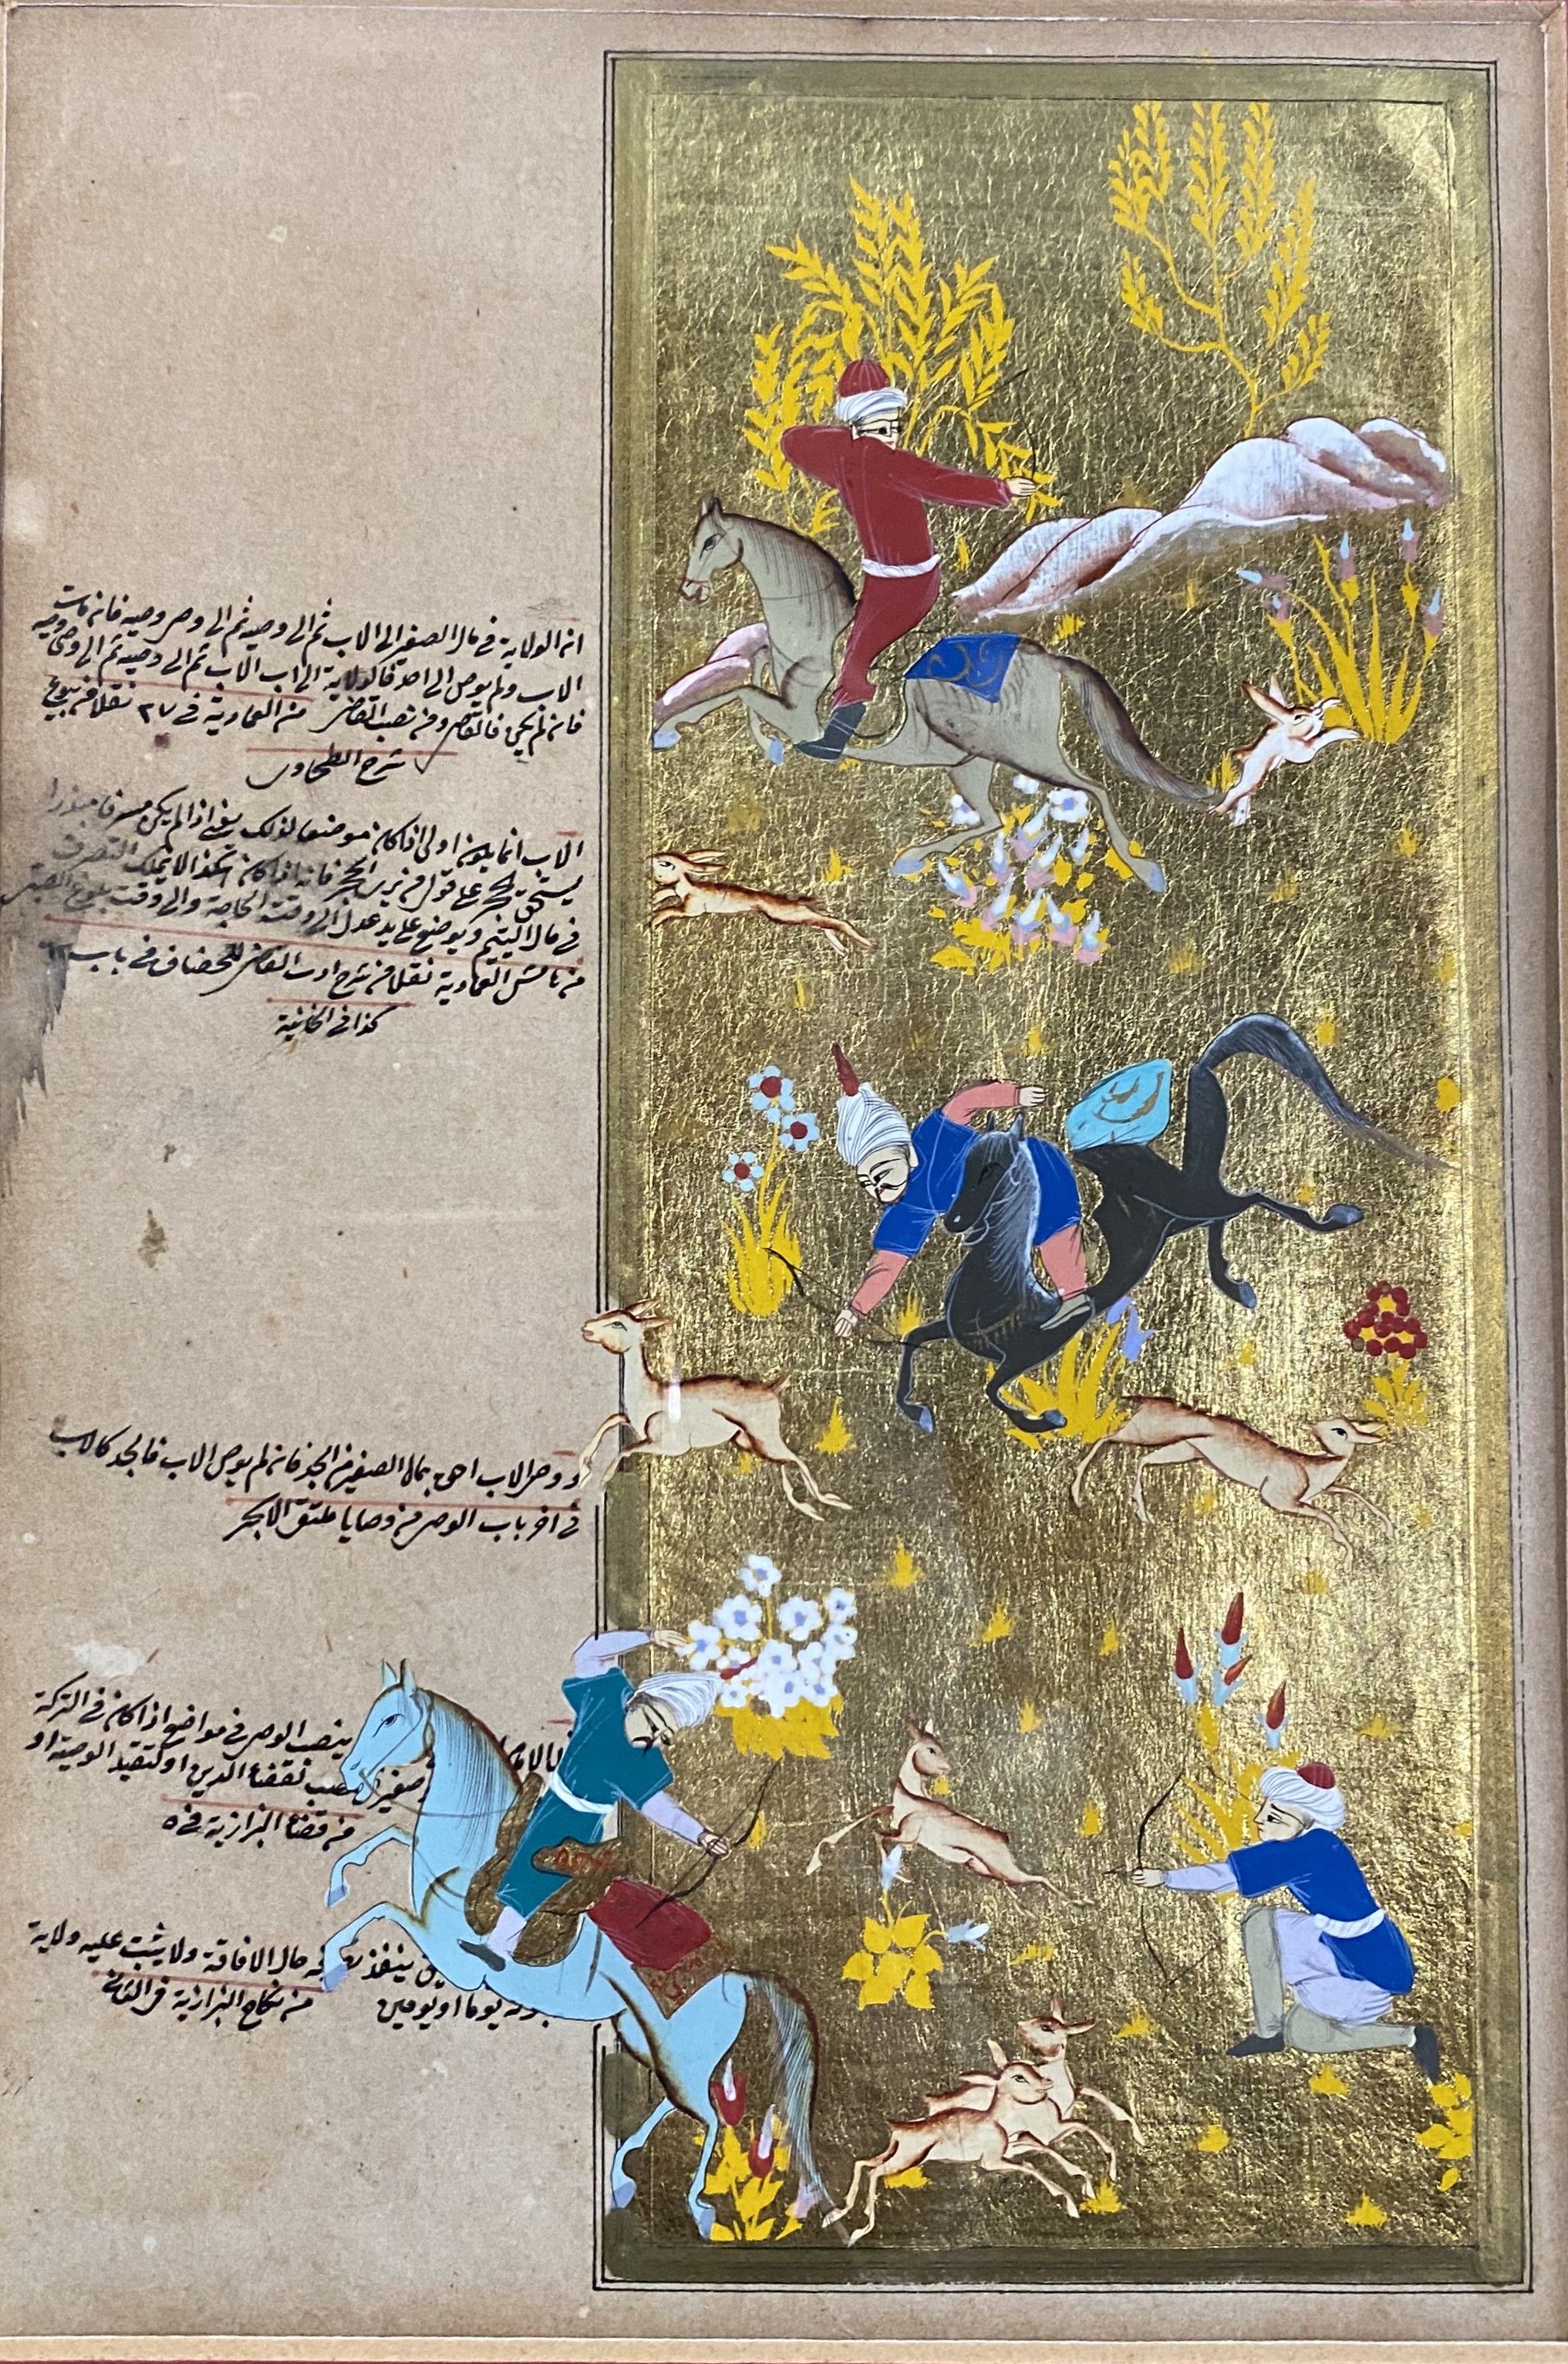 انه الولاية في مال الصغير الى الاب ثم الى وصيه ثم الى وصى وصيه فان مات
الاب ولم يوص الى احد فالولاية الى اب الاب ثم الى وصيه ثم الى وصى وصيه
فان لم يكن فالقاضى ومن نصبه القاضى من العمادية في ٢٧ نقلا من بيوع
شرح الطحاوى
الاب انما يكون اولى اذا كان موضعا لذلك يعنى اذا لم يكن مسرفا مبذرا
يستحق الحجر على قول من يرى الحجر فانه اذا كان هكذا لا يملك التصرف
في مال اليتيم ويوضع على يد عدل الى وقت الحاجة والى وقت بلوغ الصبى
من العمادية نقلا من شرح ادب القاضى للخصاف في باب
كذا في الخانية
ووصى الاب احق بمال الصغير من الجد فان لم يوص الاب فالجد كالاب
في اخر باب الوصى من وصايا ملتقى الابحر
ينصب الوصى في مواضع اذا كان في التركة
صغير لقضاء الدين او لتنفيذ الوصية او
من قضاء البزازية في ٥
ينفذ في حال الافاقة ولا يثبت عليه ولاية
يوما او يومين من نكاح البزازية في الثانى